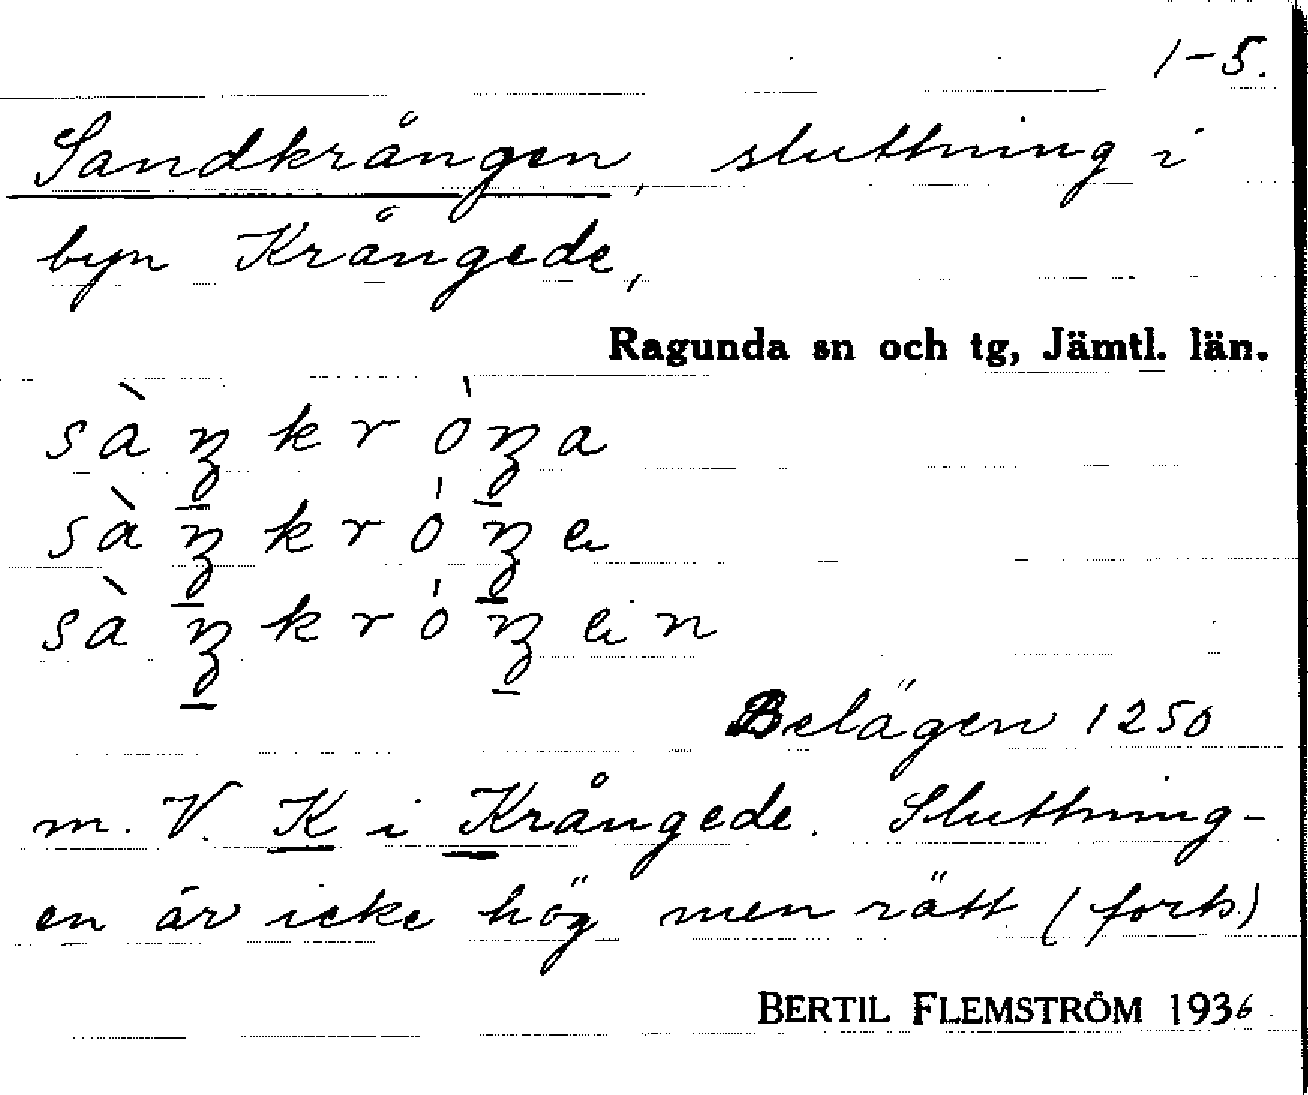 1-5.
Sandkrången, sluttning i
byn Krångede,
Ragunda sn och tg, Jämtl. län.
sàn̲kròn̲a
Belägen 1250
m. V. K i Krångede. Sluttning-
en är icke hög men rätt (forts.)
BERTIL FLEMSTRÖM 1936